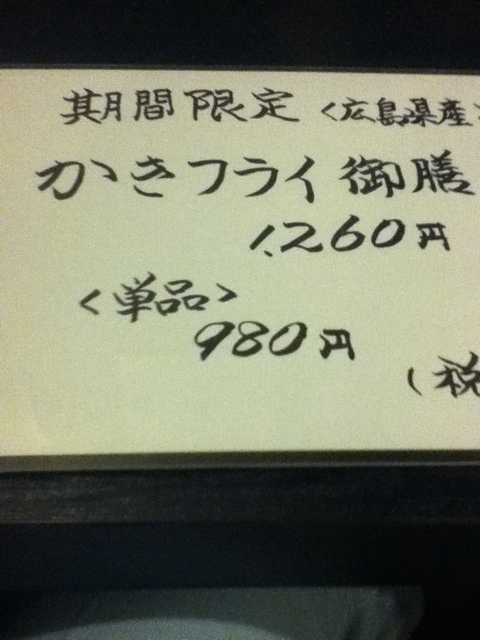 期間限定 〈広島県産〉
かきフライ御膳
1,260円
〈単品〉
980円
(税